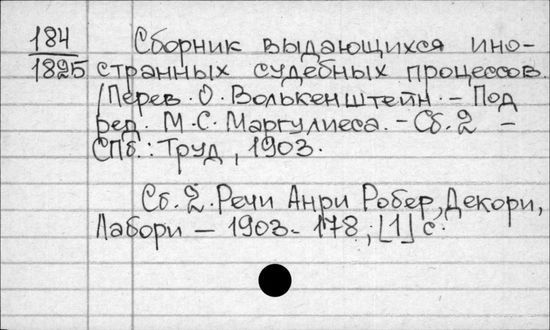 184 Сборник выдающихся ино-
1825 странных судебных процессов.
/Перев. О. Волькенштейн. – Под
ред. М.С. Маргулиеса. – Сб. 2 –
СПб.: Труд, 1903.
Сб. 2. Речи Анри Робер, Декори,
Лабори – 1903. – 178, [1] с.